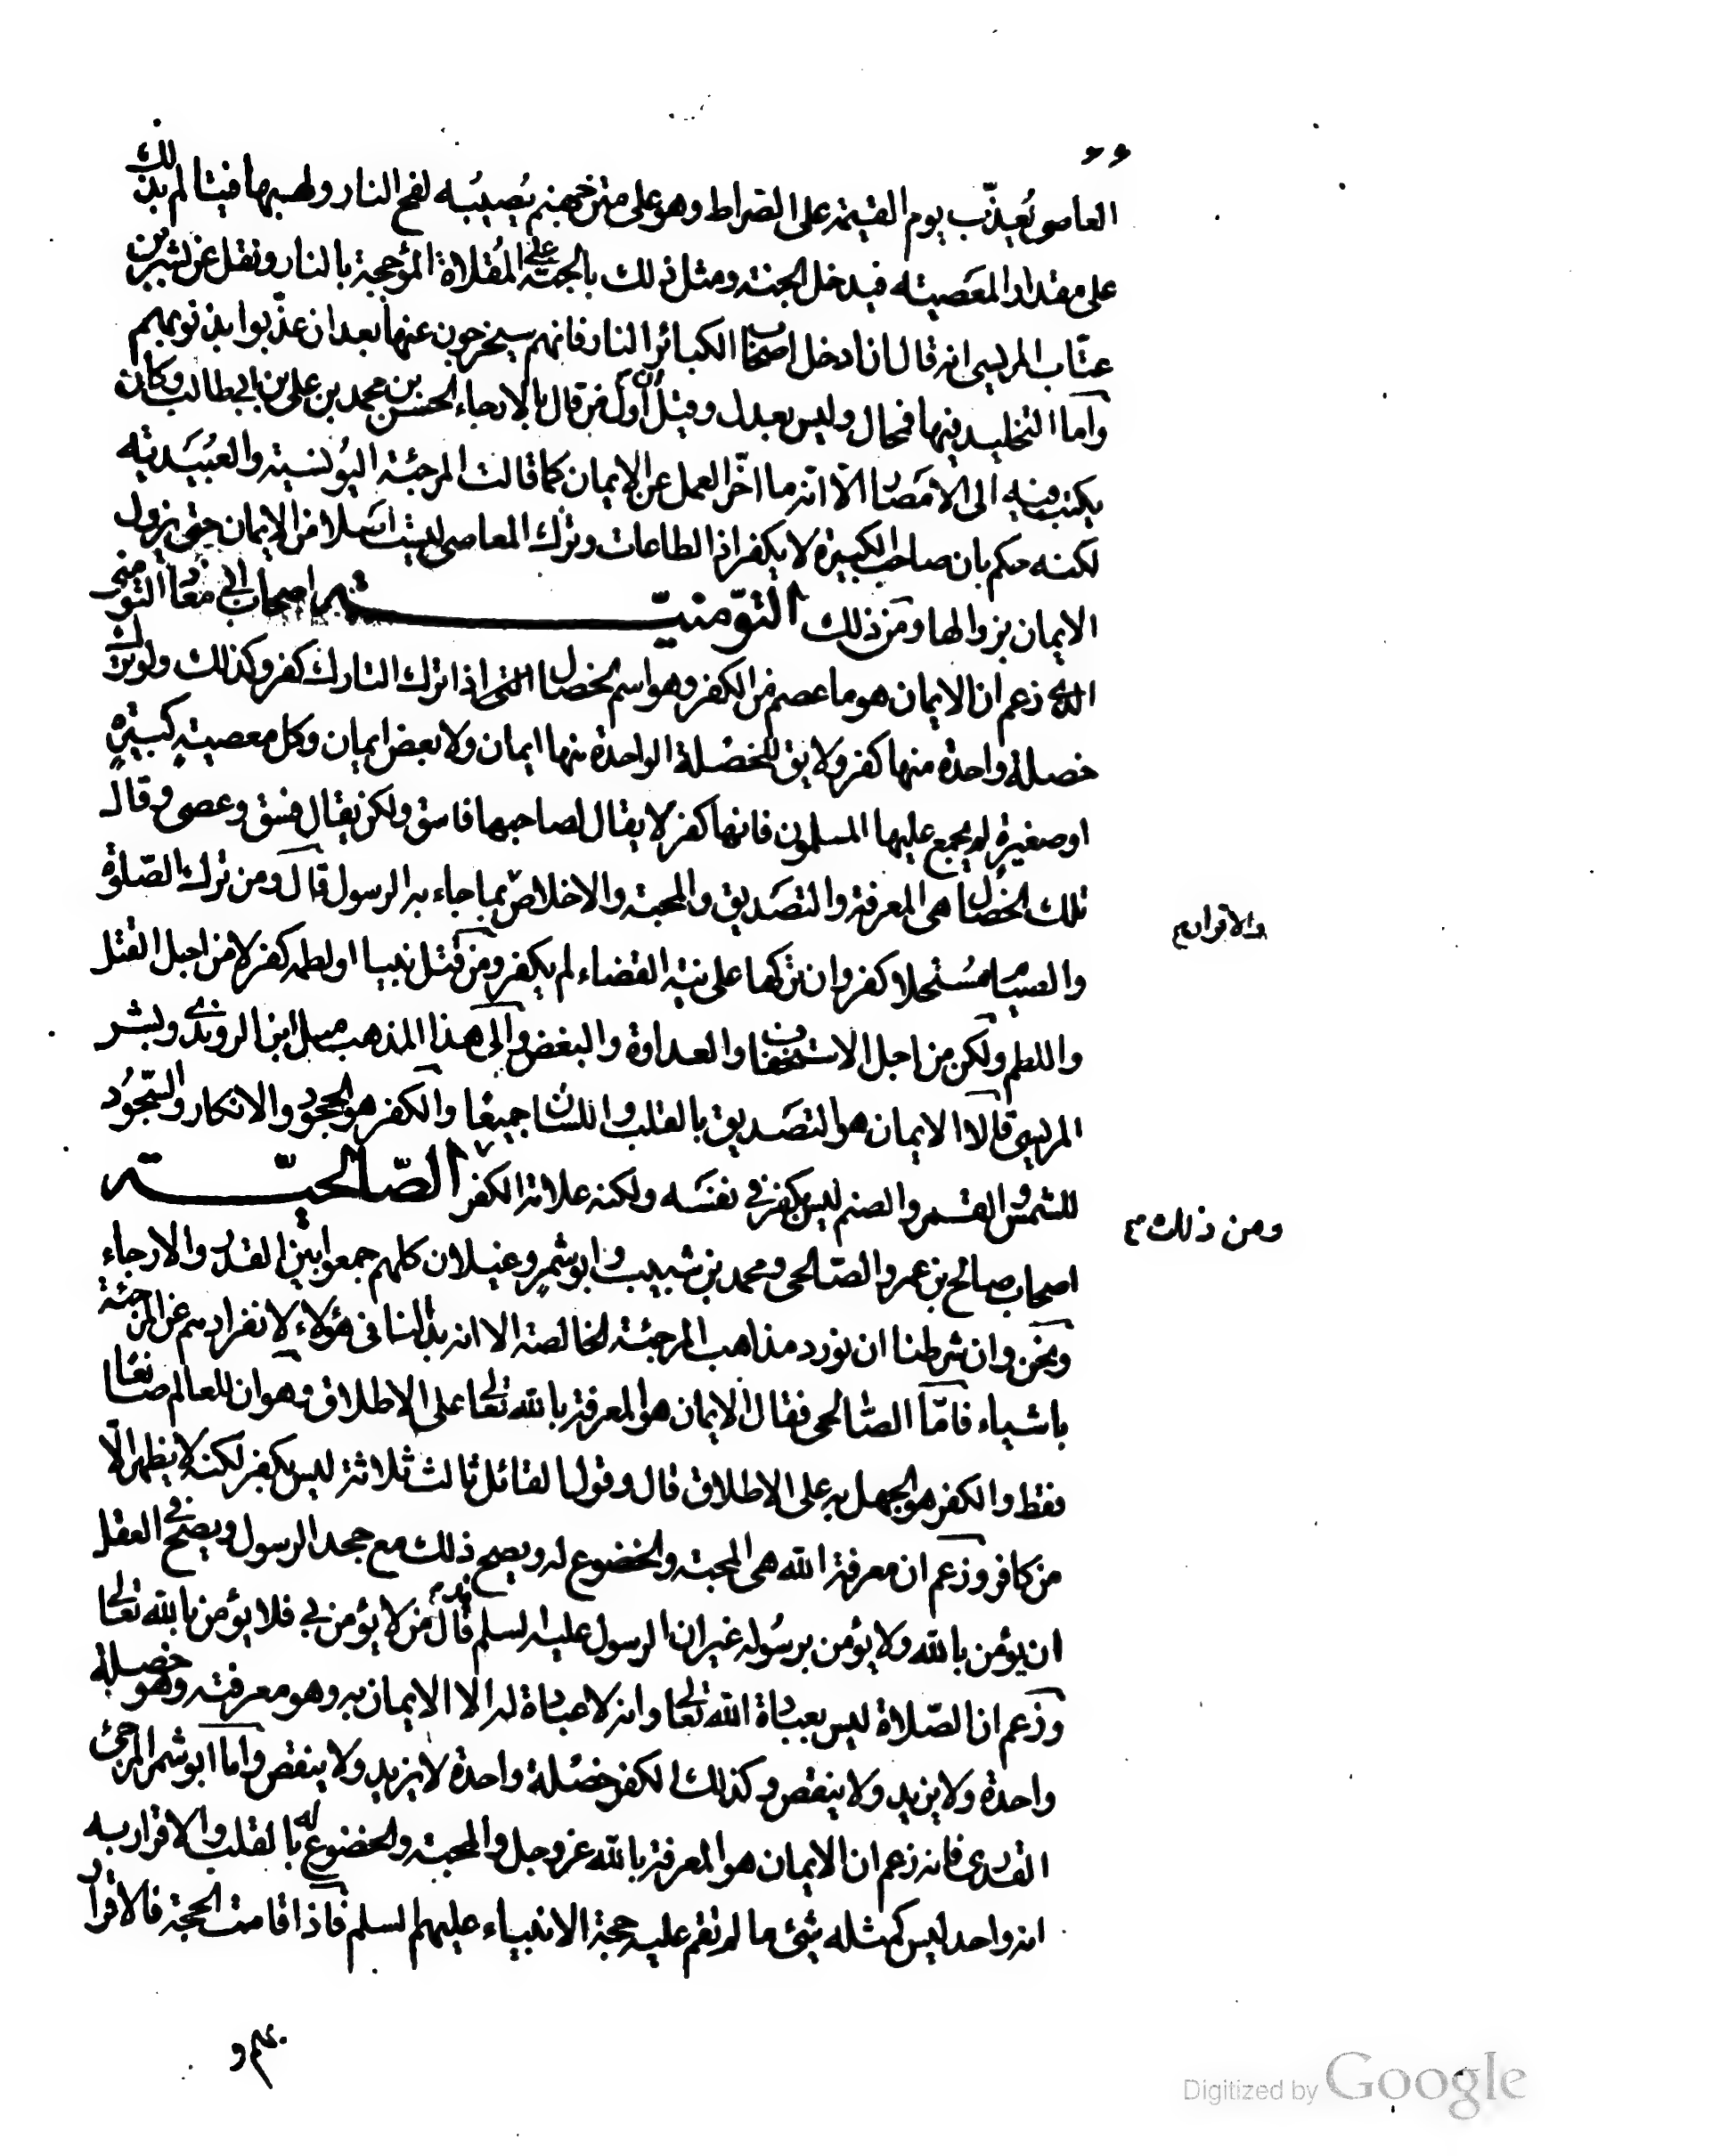 ٦٦
العاصى يُعذّب يوم القيمة على الصراط وهو على متن جهنم يُصيبُه لفح النار ولهيبها فيتالم بذلك
على مقدار المعَصيته فيدخل الجنة ومثل ذلك بالحبّة على المُقلاة المؤججة بالنار ونقل عن بشر بن
عتّاب المريسى انه قال اذا دخل اصحاب الكبائر النار فانهم سيخرجون عنها بعد ان عذّبوا بذنوبهم
واما التخليد فيها فمحال وليس بعدل وقيل ان اول من قال بالارجاء الحسن بن محمد بن على بن ابى طالب وكان
يكتب فيه الى الامصَار الا انّه ما اخّر العمل عن الايمان كما قالت المرجئة اليُونسية والعُبَيَدية
لكنه حكم بان صاحب الكبيرة لا يكفر اذ الطاعات وترك المعاصى ليست اصَلا من الايمان حتى يزول
الايمان بزوالها ومن ذلك التوّمنيّة اصحاب ابى مُعاذ التومنى
الذى زعم ان الايمان هو ما عصم من الكفر وهو اسم لخصال التى اذا ترك التارك كفر وكذلك ولو ترك
خصلة واحدة منها كفر ولا يق للخصْلة الواحدة منها ايمان ولا بعض ايمان وكل معصيةٍ كبيرةٍ
او صغيرةٍ لم يجمع عليها المسلمون فانها كفر لا يقال لصاحبها فاسق ولكن يقال فسق وعصى وقال
تلك الخصال هى المعرفة والتصَديق والمحبة والاخلاص بما جاء به الرسول قال ومن ترك الصّلوة
والاقرار م
والصيام مُستحلا كفر وان تركها على نية القضاء لم يكفر ومن قتل نبيا او لطمه كفر لا من اجل القتل
واللطم ولكن من اجل الاستخفاف والعداوة والبغض والى هذا المذهب ميل ابن الروندى وبشر
المريسى قالا الايمان هو التصَديق بالقلب واللسان جميعًا والكفر هو الجحود والانكار والسّجُود
للشمس والقمر والصنم ليس بكفر فى نفسَه ولكنه علامة الكفر الصّالحيّة
ومن ذلك م
اصحاب صالح بن عمرو الصّالحى ومحمد بن شبيب وابو شمرٍ وغيلان كلهم جمعوا بين القدر والارجاء
ونحن وان شرطنا ان نورد مذاهب المرجئة الخالصة الا انه بدا لنا فى هؤلاء لانفرادهم عن المرجئة
باشياء فامّا الصّالحى فقال الايمان هو المعرفة بالله تعالى على الاطلاق وهو ان للعالم صانعًا
فقط والكفر هو الجهل به على الاطلاق قال وقول القائل ثالث ثلاثة ليس بكفر لكنه لا يظهر الّا
من كافر وزعم ان معرفة الله هى المحبة والخضوع له ويصح ذلك مع جحد الرسول ويصح فى العقل
ان يؤمن بالله ولا يؤمن برسُوله غير ان الرسول عليه السلم قد قال من لا يؤمن بى فلا يؤمن بالله تعالى
وزعم ان الصّلاة ليس بعبادة الله تعالى وانه لا عبادة له الا الايمان به وهو معرفته وهو خصلة
واحدة ولا يزيد ولا ينقص وكذلك الكفر خصْلة واحدة لا يزيد ولا ينقص واما ابو شمر المرجئ
القدرى فانه زعم ان الايمان هو المعرفة بالله عز وجل والمحبة والخضوع له بالقلب والاقرار به
انه واحد ليس كمثله شئ ما لم تقم عليه حجة الانبياء عليهم السلم فاذا قامت الحجة فالاقرار
بهم و
Digitized by Google